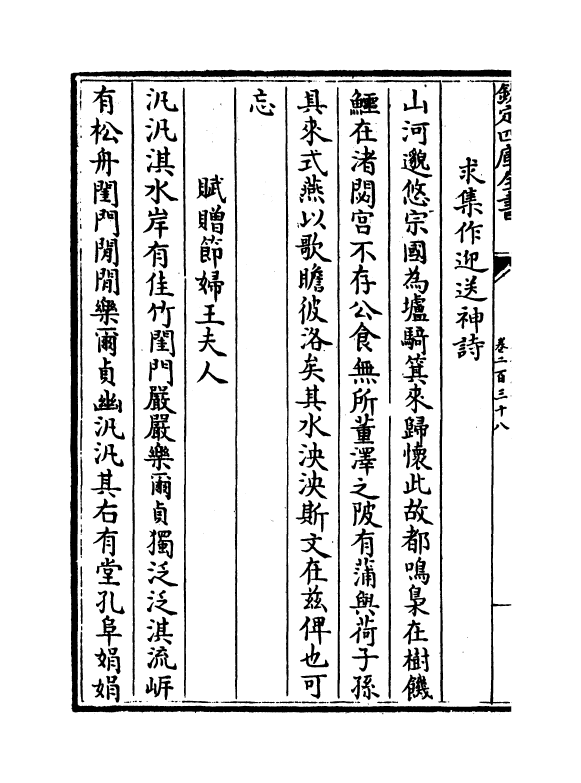 欽定四庫全書
卷二百三十八
求集作迎送神詩
山河邈悠宗國為墟騎箕來歸懷此故都鳴梟在樹饑
鱷在渚閟宮不存公食無所董澤之陂有蒲與荷子孫
具來式燕以歌瞻彼洛矣其水泱泱斯文在兹俾也可
忘
賦贈節婦王夫人
汎汎淇水岸有佳竹閨門嚴嚴樂爾貞獨泛泛淇流㟁
有松舟閨門閒閒樂爾貞幽汎汎其右有堂孔阜娟娟